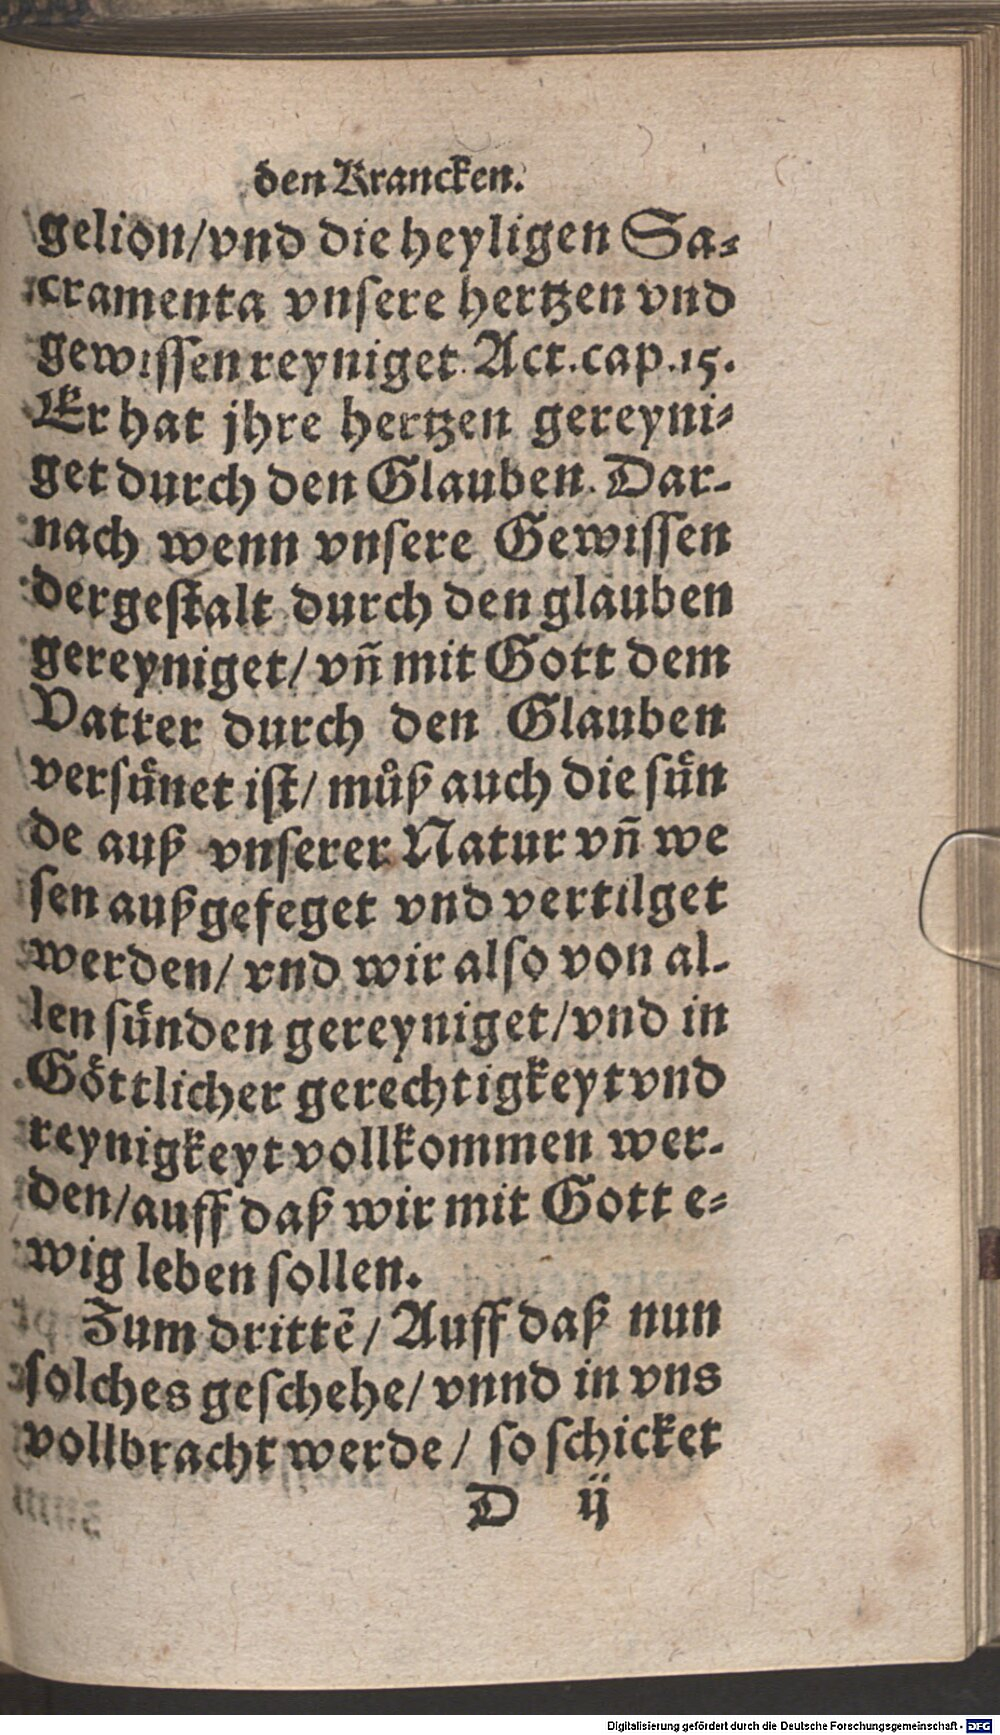 den Krancken.
gelion/vnd die heyligen Sa⸗
cramenta vnsere hertzen vnd
gewissen reyniget. Act. cap. 15.
Er hat jhre hertzen gereyni⸗
get durch den Glauben. Dar-
nach wenn vnsere Gewissen
dergestalt durch den glauben
gereyniget/ vñ mit Gott dem
Vatter durch den Glauben
versuͤnet ist/ muͦß auch die suͤn
de auß vnserer Natur vñ we
sen außgefeget vnd vertilget
werden/ vnd wir also von al-
len suͤnden gereyniget/vnd in
Goͤttlicher gerechtigkeyt vnd
reynigkeyt vollkommen wer-
den/auff daß wir mit Gott e⸗
wig leben sollen.
Zum drittē/ Auff daß nun
solches geschehe/ vnnd in vns
vollbracht werde/ so schicket
D ij
Digitalisierung gefördert durch die Deutsche Forschungsgemeinschaft - DFG